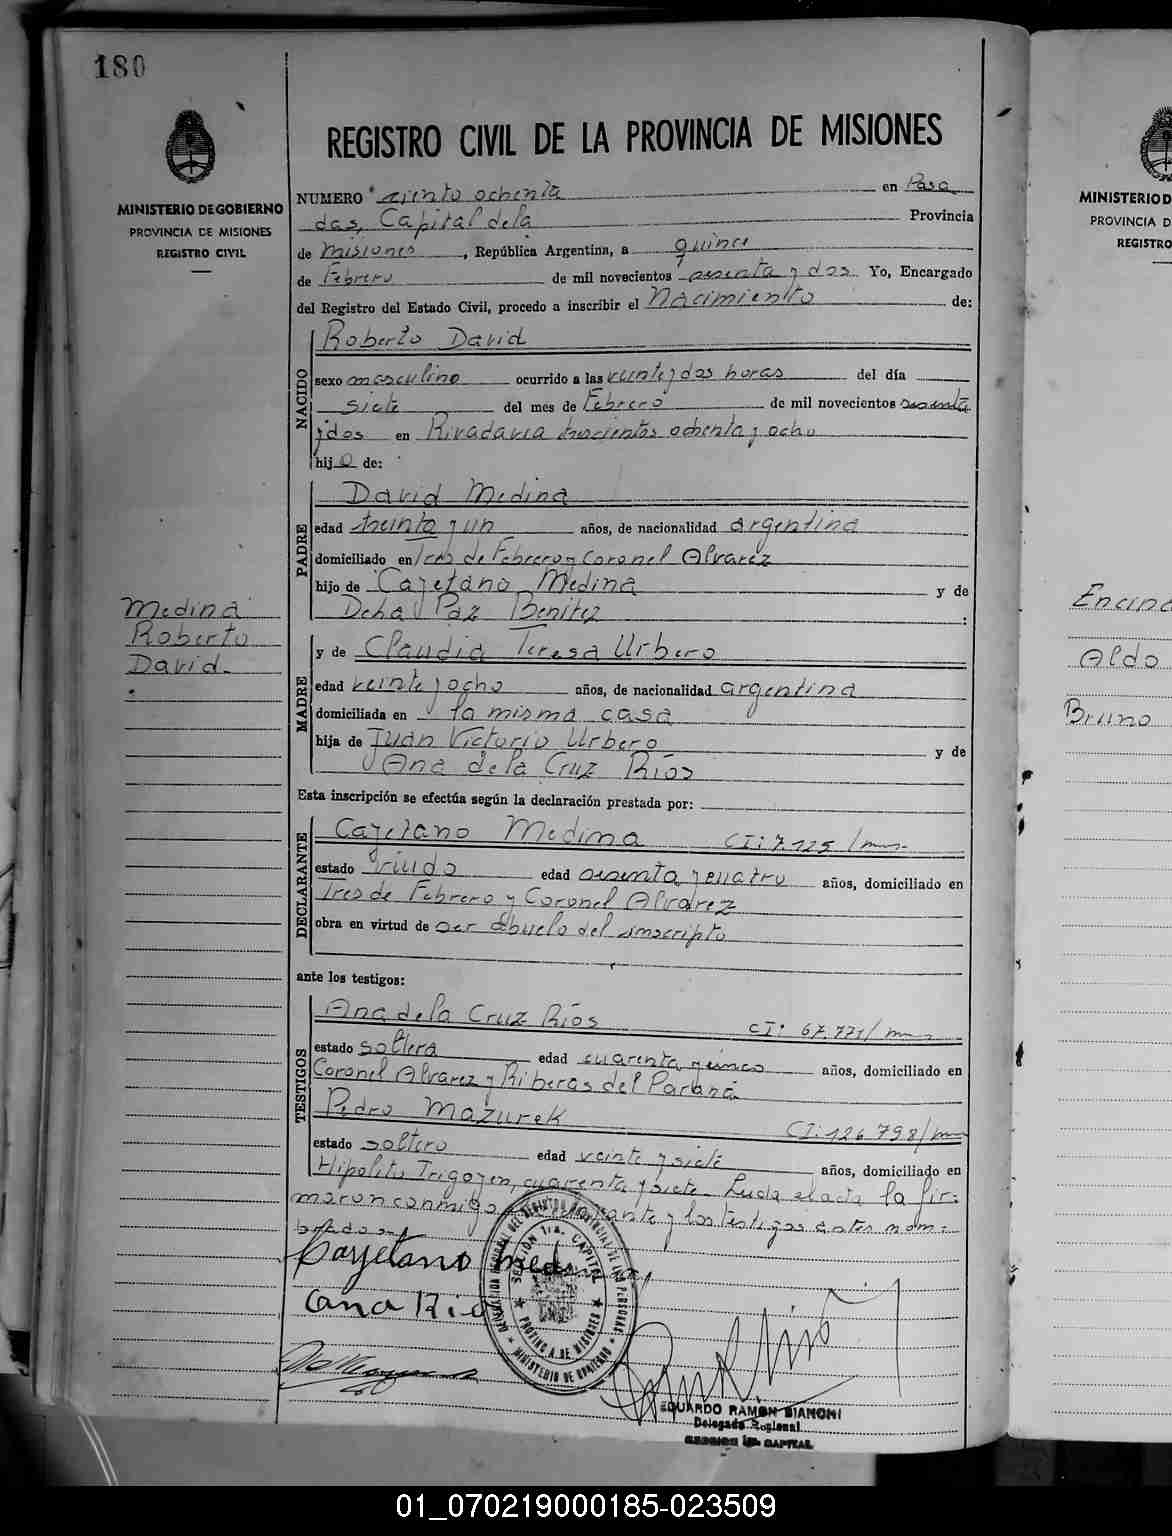 180
MINISTERIO DE GOBIERNO
PROVINCIA DE MISIONES
REGISTRO CIVIL
Medina
Roberto
David.
REGISTRO CIVIL DE LA PROVINCIA DE MISIONES
NUMERO ciento ochenta en Posa
das, Capital de la Provincia
de Misiones, República Argentina, a quince
de Febrero de mil novecientos sesenta y dos Yo, Encargado
del Registro del Estado Civil, procedo a inscribir el Nacimiento de:
NACIDO
Roberto David
sexo masculino ocurrido a las veinte y dos horas del día
siete del mes de Febrero de mil novecientos sesenta
y dos en Rivadavia trescientos ochenta y ocho
hijo de:
PADRE
David Medina
edad treinta y un años, de nacionalidad argentina
domiciliado en Tres de Febrero y Coronel Alvarez
hijo de Cayetano Medina y de
Paz Benitez :
MADRE
y de Claudia Teresa Urbero
edad veinte y ocho años, de nacionalidad argentina
domiciliada en la misma casa
hija de Juan Victorio Urbero y de
Ana de la Cruz Ríos
Esta inscripción se efectúa según la declaración prestada por:
DECLARANTE
Cayetano Medina CI: 7.125/mnes
estado viudo edad sesenta y cuatro años, domiciliado en
Tres de Febrero y Coronel Alvarez
obra en virtud de ser abuelo del inscripto
ante los testigos:
TESTIGOS
Ana de la Cruz Ríos CI: 67.771/mnes
estado soltera edad cuarenta y cinco años, domiciliado en
Coronel Alvarez y Riberas del Paraná
Pedro Mazurek CI: 126.798/mn
estado soltero edad veinte y siete años, domiciliado en
Hipolito Irigoyen, cuarenta y siete. Leida el acta la fir-
maron conmigo y los testigos antes nom-
brados.
Cayetano Medina
Ana Rios
DELEGACION REGIONAL DEL REGISTRO PROVINCIAL DE LAS PERSONAS
SECCION 1ra. CAPITAL
PROVINCIA DE MISIONES
MINISTERIO DE GOBIERNO
EDUARDO RAMON BIANCHI
Delegado Regional
SECCION 1ra. CAPITAL
MINISTERIO D
PROVINCIA D
REGISTRO
Aldo
Bruno
01_070219000185-023509